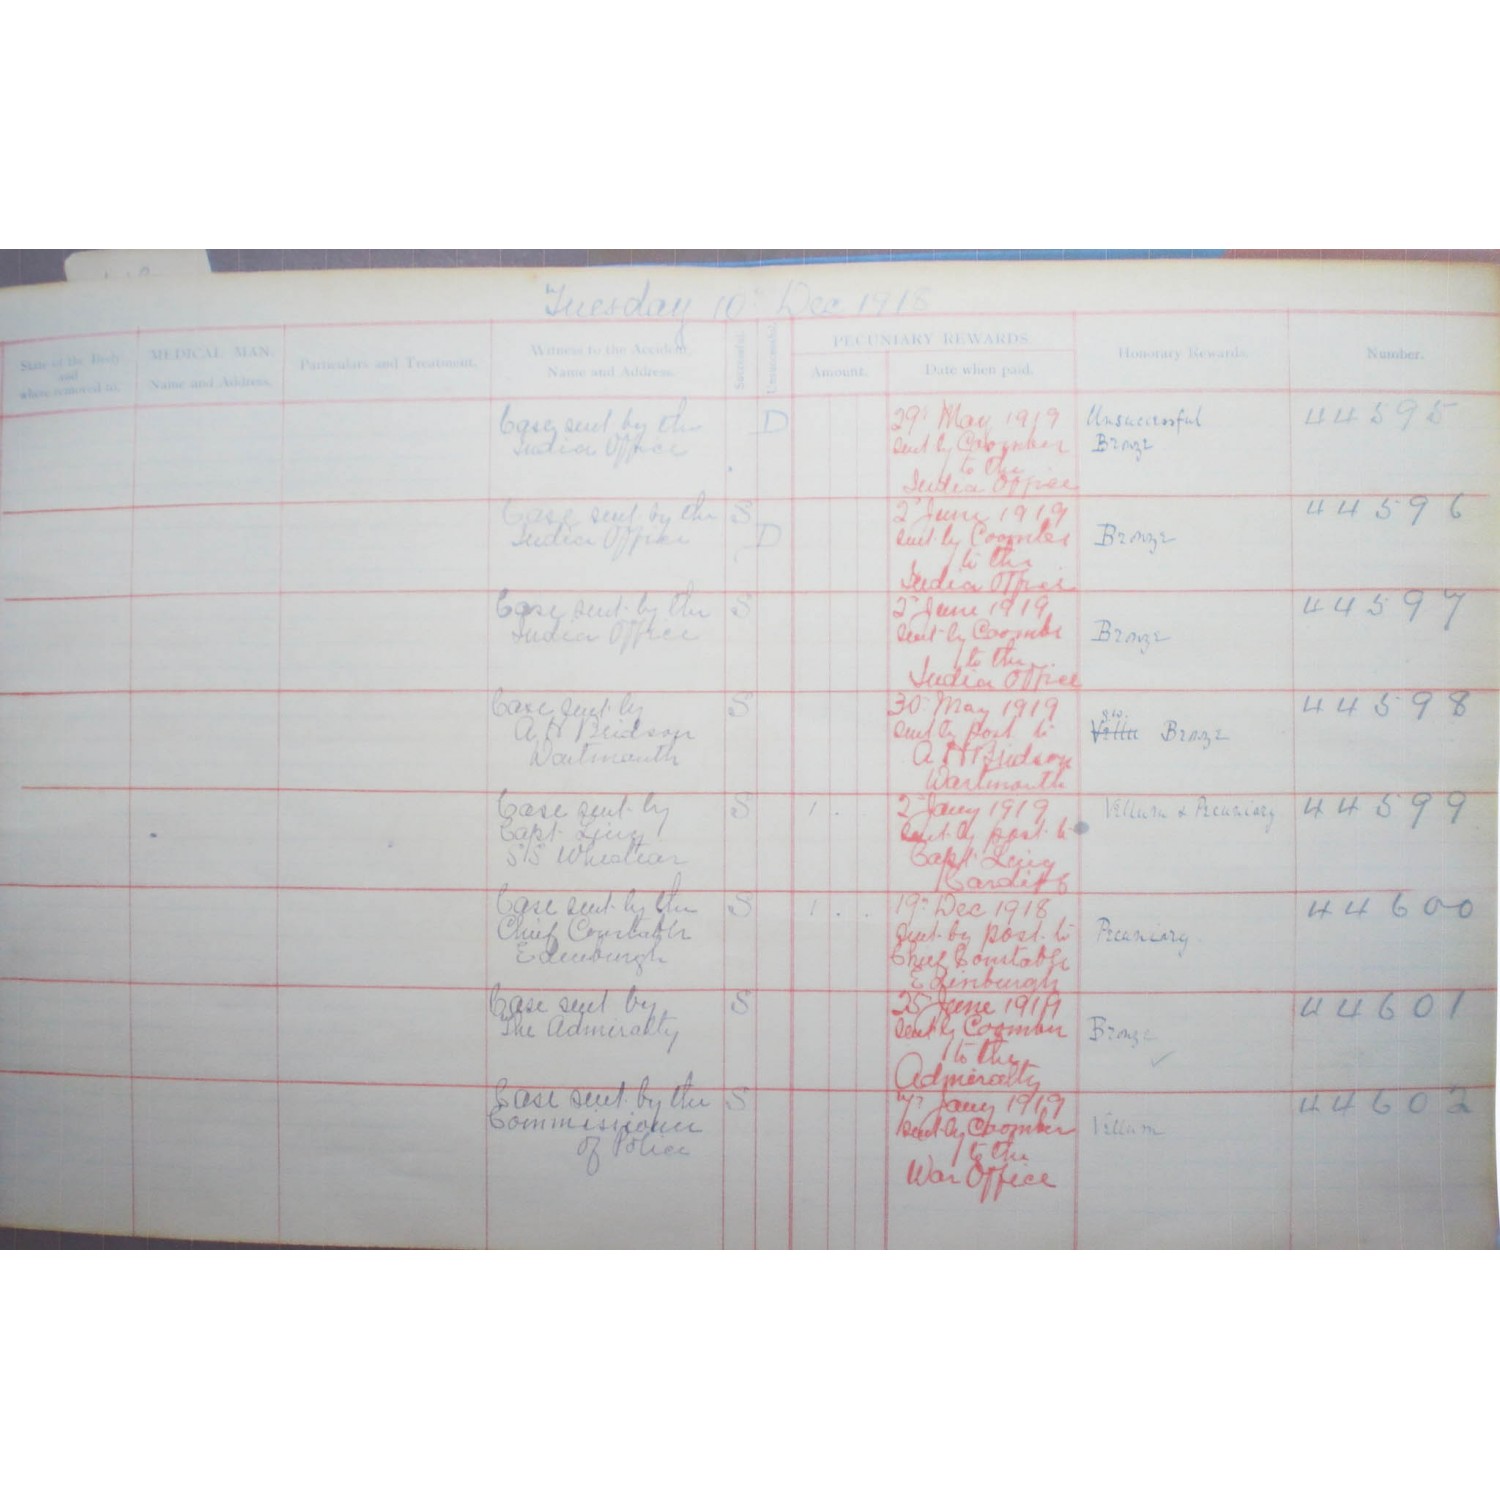 Tuesday 10th Dec 1918
State of the Body and where removed to.
MEDICAL MAN. Name and Address.
Particulars and Treatment.
Witness to the Accident, Name and Address.
Successful.
Unsuccessful.
PECUNIARY REWARDS.
Amount.
Date when paid.
Honorary Rewards.
Number.
Case sent by the
India Office
D
29th May 1919
sent by Coomber
to the
India Office
Unsuccessful
Bronze
44595
Case sent by the
India Office
S
D
2nd June 1919
sent by Coomber
to the
India Office
Bronze
44596
Case sent by the
India Office
S
2nd June 1919
sent by Coomber
to the
India Office
Bronze
44597
Case sent by
A H Bridson
Dartmouth
S
30th May 1919
sent by post to
A H Bridson
Dartmouth
Bronze
44598
Case sent by
Capt. Ling
S/S Whistlar
S
1 .
2nd Jany 1919
sent by post to
Capt. Ling
Cardiff
Vellum & Pecuniary
44599
Case sent by the
Chief Constable
Edinburgh
S
1 . .
19th Dec 1918
sent by post to
Chief Constable
Edinburgh
Pecuniary
44600
Case sent by
The Admiralty
S
25th June 1919
sent by Coomber
to the
Admiralty
Bronze
44601
Case sent by the
Commissioner
of Police
S
7th Jany 1919
sent by Coomber
to the
War Office
Vellum
44602